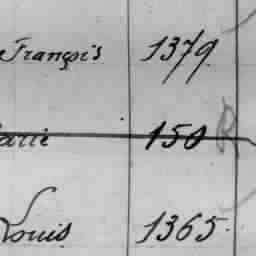 François 1379
arie 150 R
Louis 1365.